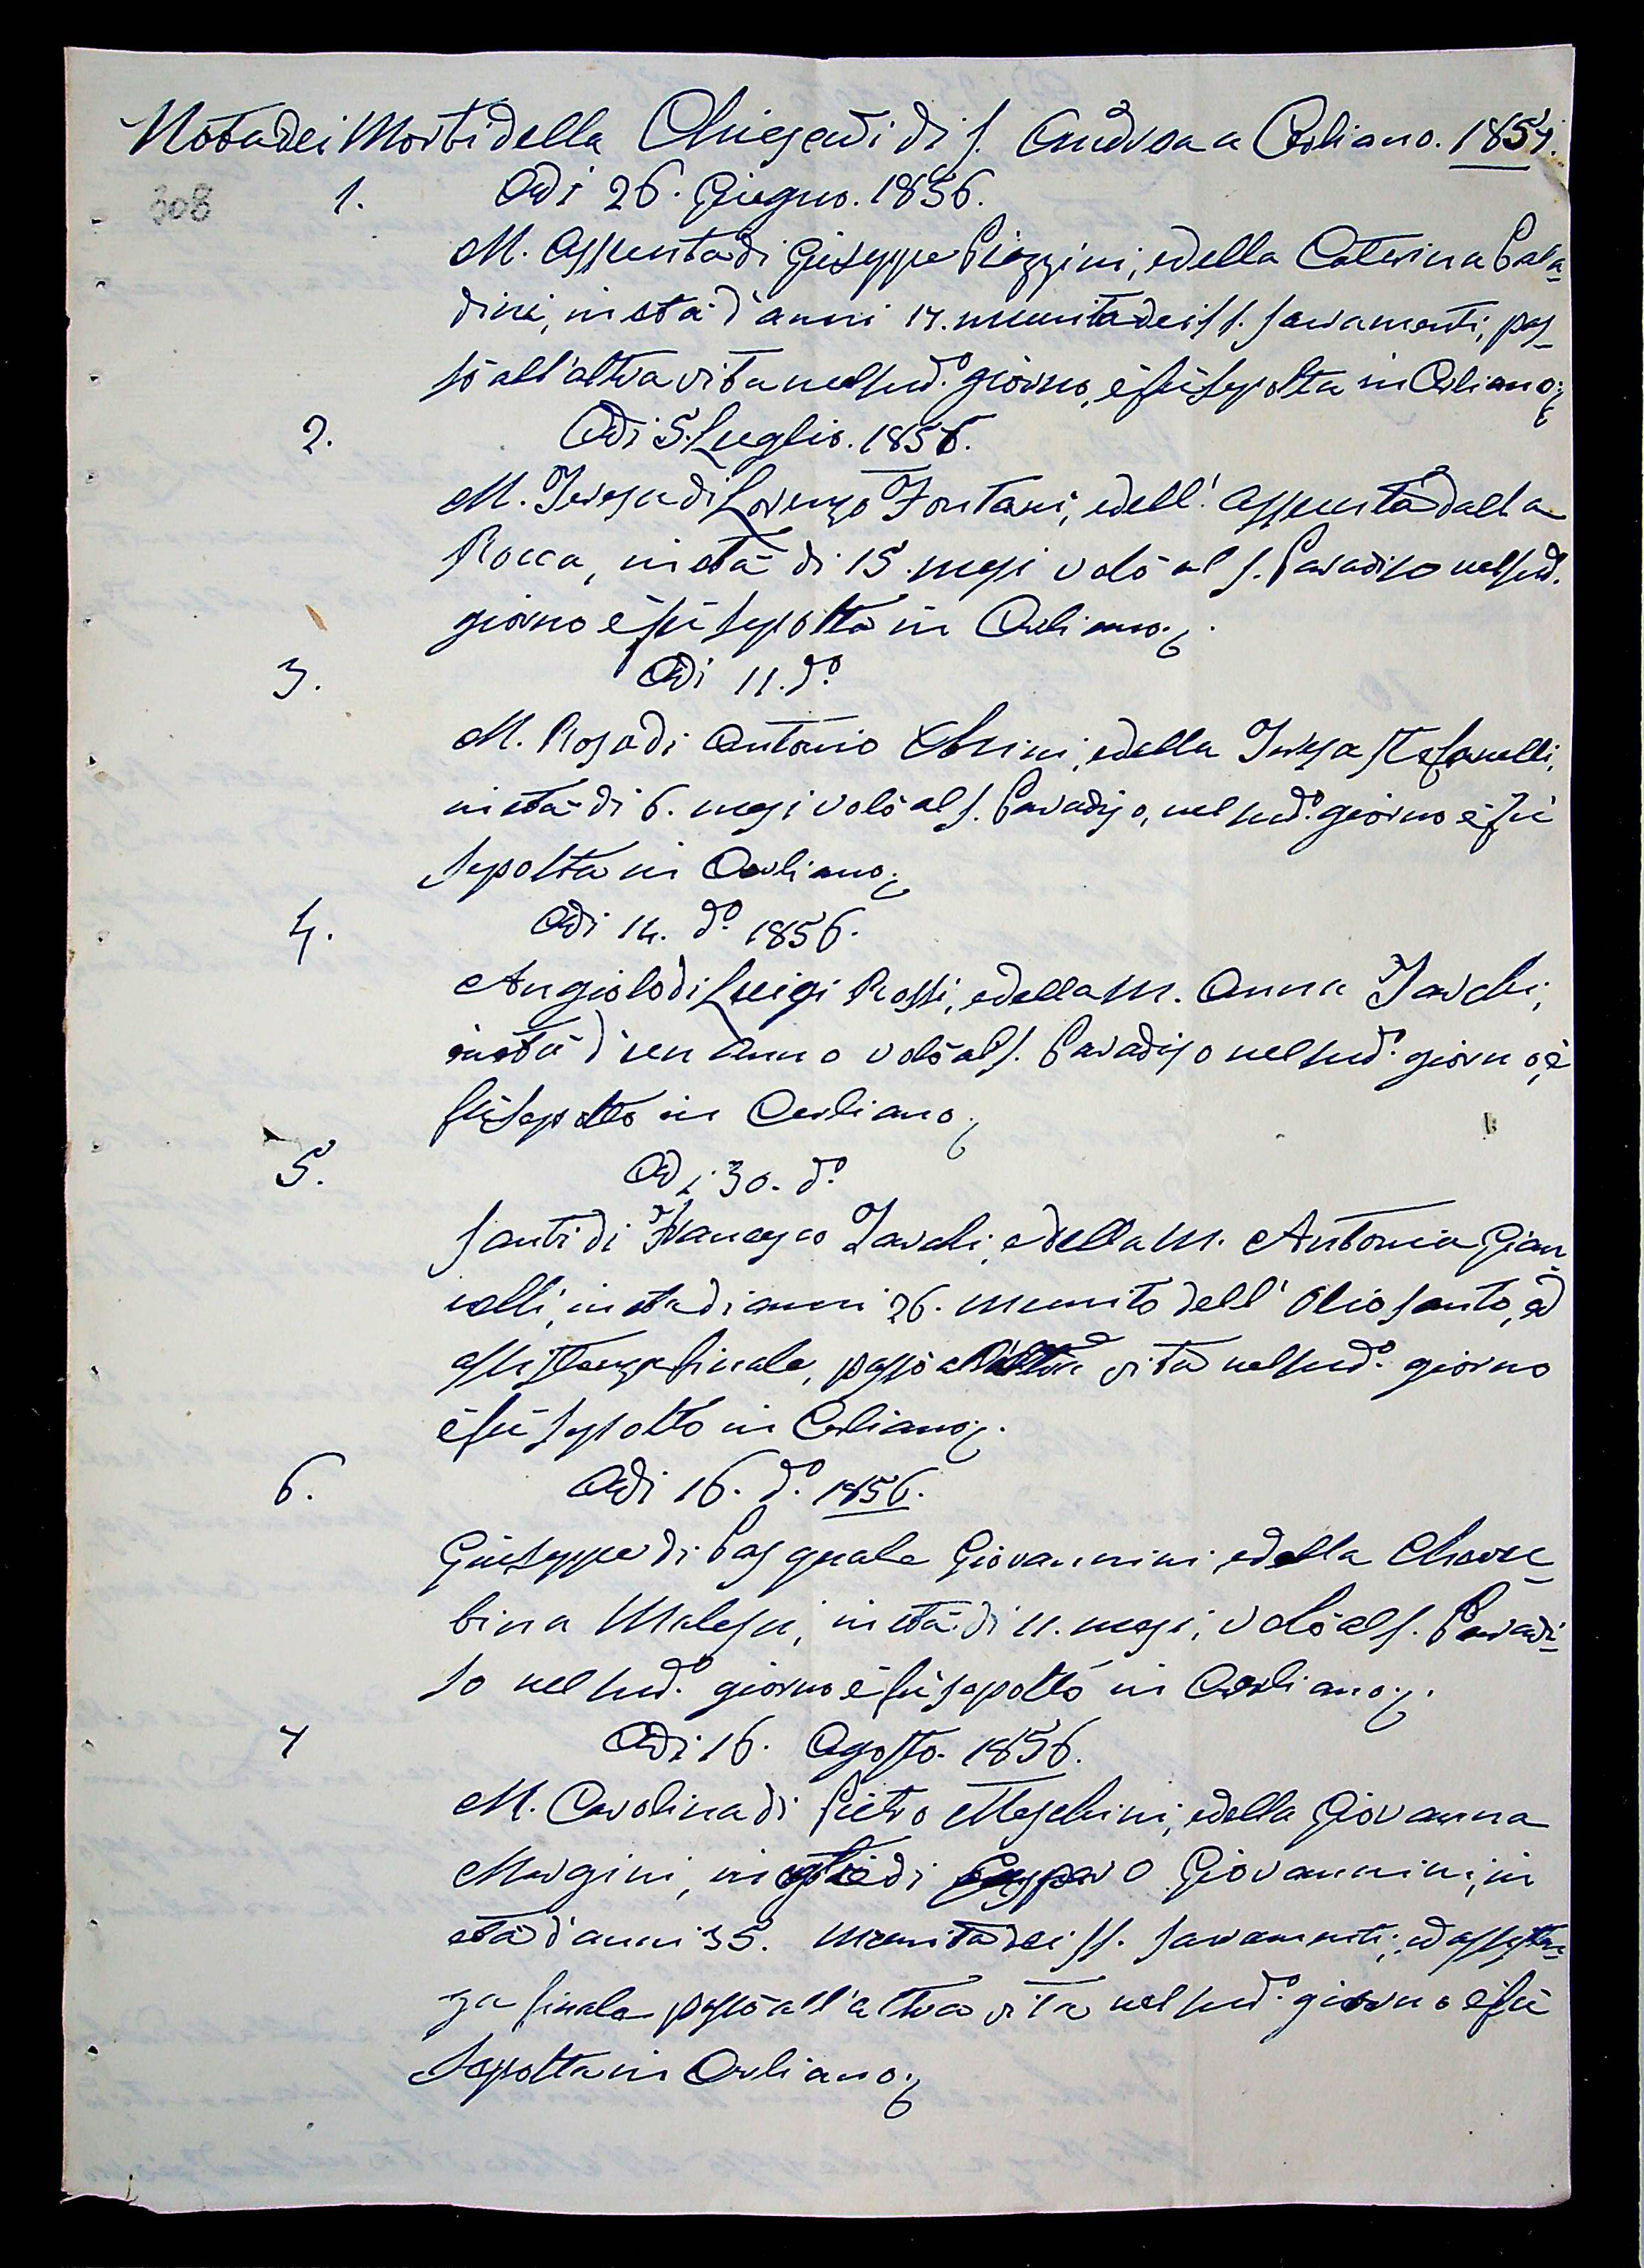 Nota dei Morti della Chiesa di di S. Andrea a Carliano. 1857.
308 1. Adì 26. Giugno. 1856.
M. Assunta di Giuseppe Piazzini, e della Caterina Pala-
dini, in età d'anni 17. munita dei SS. Sacramenti, pas-
sò all'altra vita nel sud.o giorno, é fù sepolta in Carliano;
2. Adì 5. Luglio. 1856.
M. Teresa di Lorenzo Fontani, e dell'Assunta dalla
Rocca, in età di 15. mesi volò al S. Paradiso nel sud.
giorno é fù sepolta in Carliano;.
3. Adì 11. d.o
M. Rosa di Antonio e della Teresa Stefanelli,
in età di 6. mesi volò al S. Paradiso, nel sud.o giorno é fù
sepolta in Carliano;
4. Adì 14. d.o 1856.
Angiolo di Luigi Rossi, e della M. Anna Iacchi,
in età d'un anno volò al S. Paradiso nel sud.o giorno, é
fù sepolto in Carliano;
5. Adì 30. d.o
Santi di Francesco e della M. Antonia Gian-
nelli, in età di anni 26. munito dell'Olio Santo, ed
assistenza finale, passò all'altra vita nel sud.o giorno
é fù sepolto in Carliano;.
6. Adì 16. d.o 1856.
Giuseppe di Pasquale Giovannini, e della Cheru-
bina in età di 11. mesi, volò al S. Paradi-
so nel sud.o giorno é fù sepolto in Carliano;.
7 Adì 16. Agosto. 1856.
M. Carolina di Pietro Meschini, e della Giovanna
Morgini, moglie di Gasparo Giovannini, in
età d'anni 35. munita dei SS. Sacramenti, ed assisten-
za finale passò all'altra vita nel sud.o giorno é fù
sepolta in Carliano;